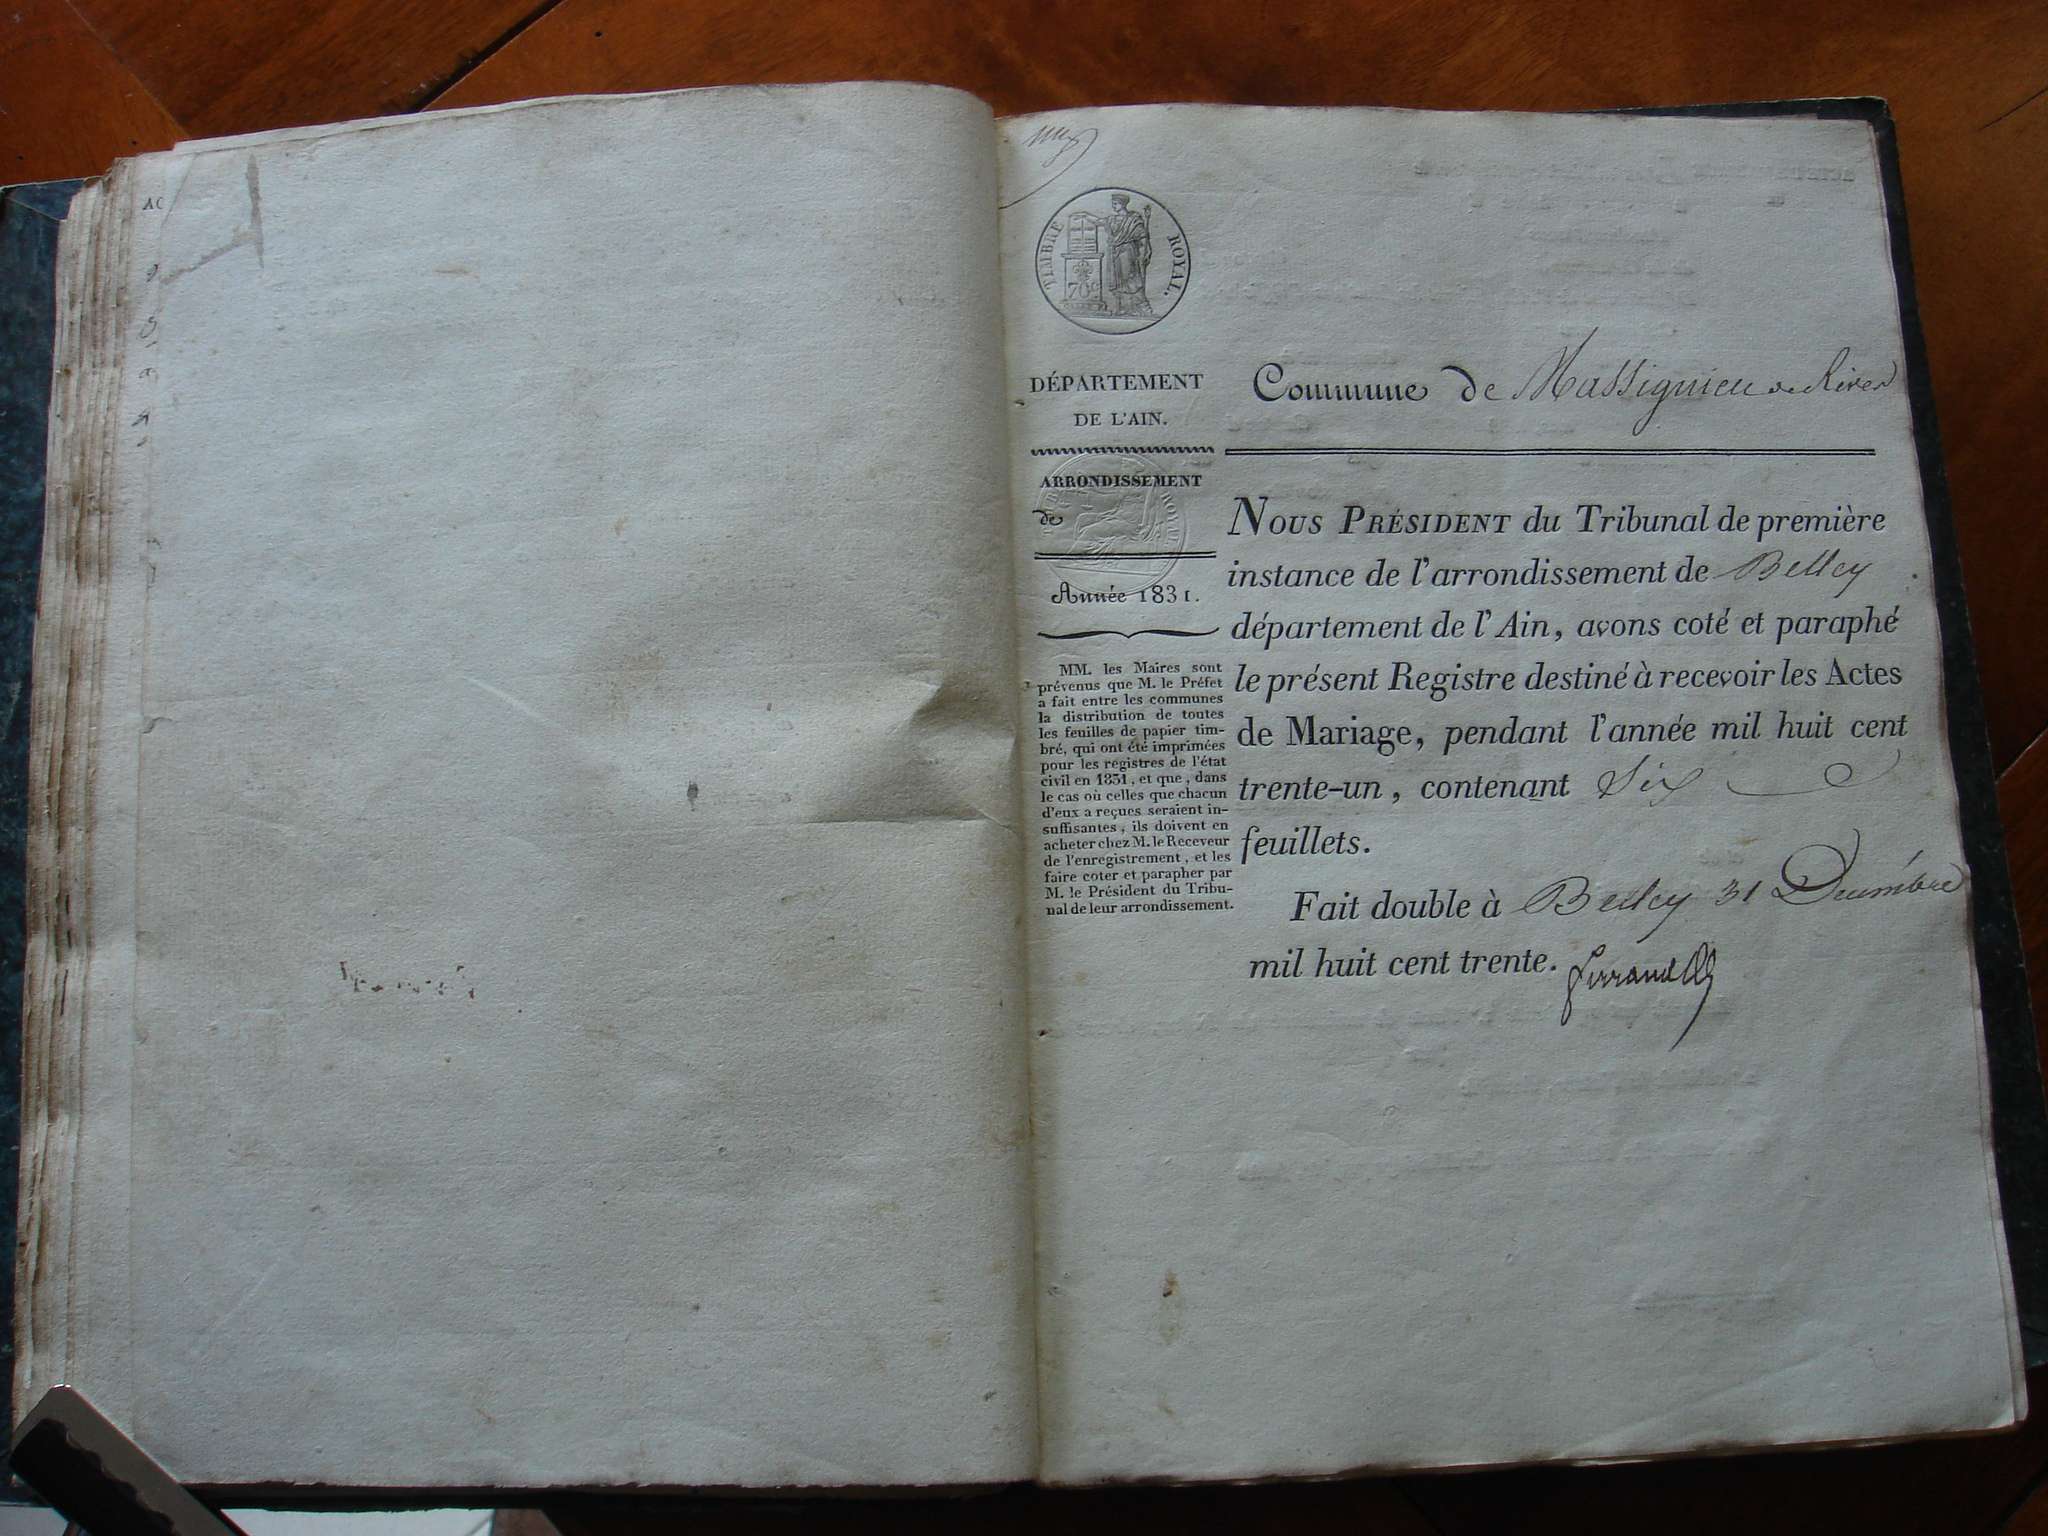 TIMBRE ROYAL.
70 c
DÉPARTEMENT
DE L'AIN.
ARRONDISSEMENT
de
Année 1831.
MM. les Maires sont
prévenus que M. le Préfet
a fait entre les communes
la distribution de toutes
les feuilles de papier tim-
bré, qui ont été imprimées
pour les registres de l'état
civil en 1831, et que, dans
le cas où celles que chacun
d'eux a reçues seraient in-
suffisantes, ils doivent en
acheter chez M. le Receveur
de l'enregistrement, et les
faire coter et parapher par
M. le Président du Tribu-
nal de leur arrondissement.
Commune de Massignieu de Rives
NOUS PRÉSIDENT du Tribunal de première
instance de l'arrondissement de Belley
département de l'Ain, avons coté et paraphé
le présent Registre destiné à recevoir les Actes
de Mariage, pendant l'année mil huit cent
trente-un, contenant Six
feuillets.
Fait double à Belley 31 Decembre
mil huit cent trente.